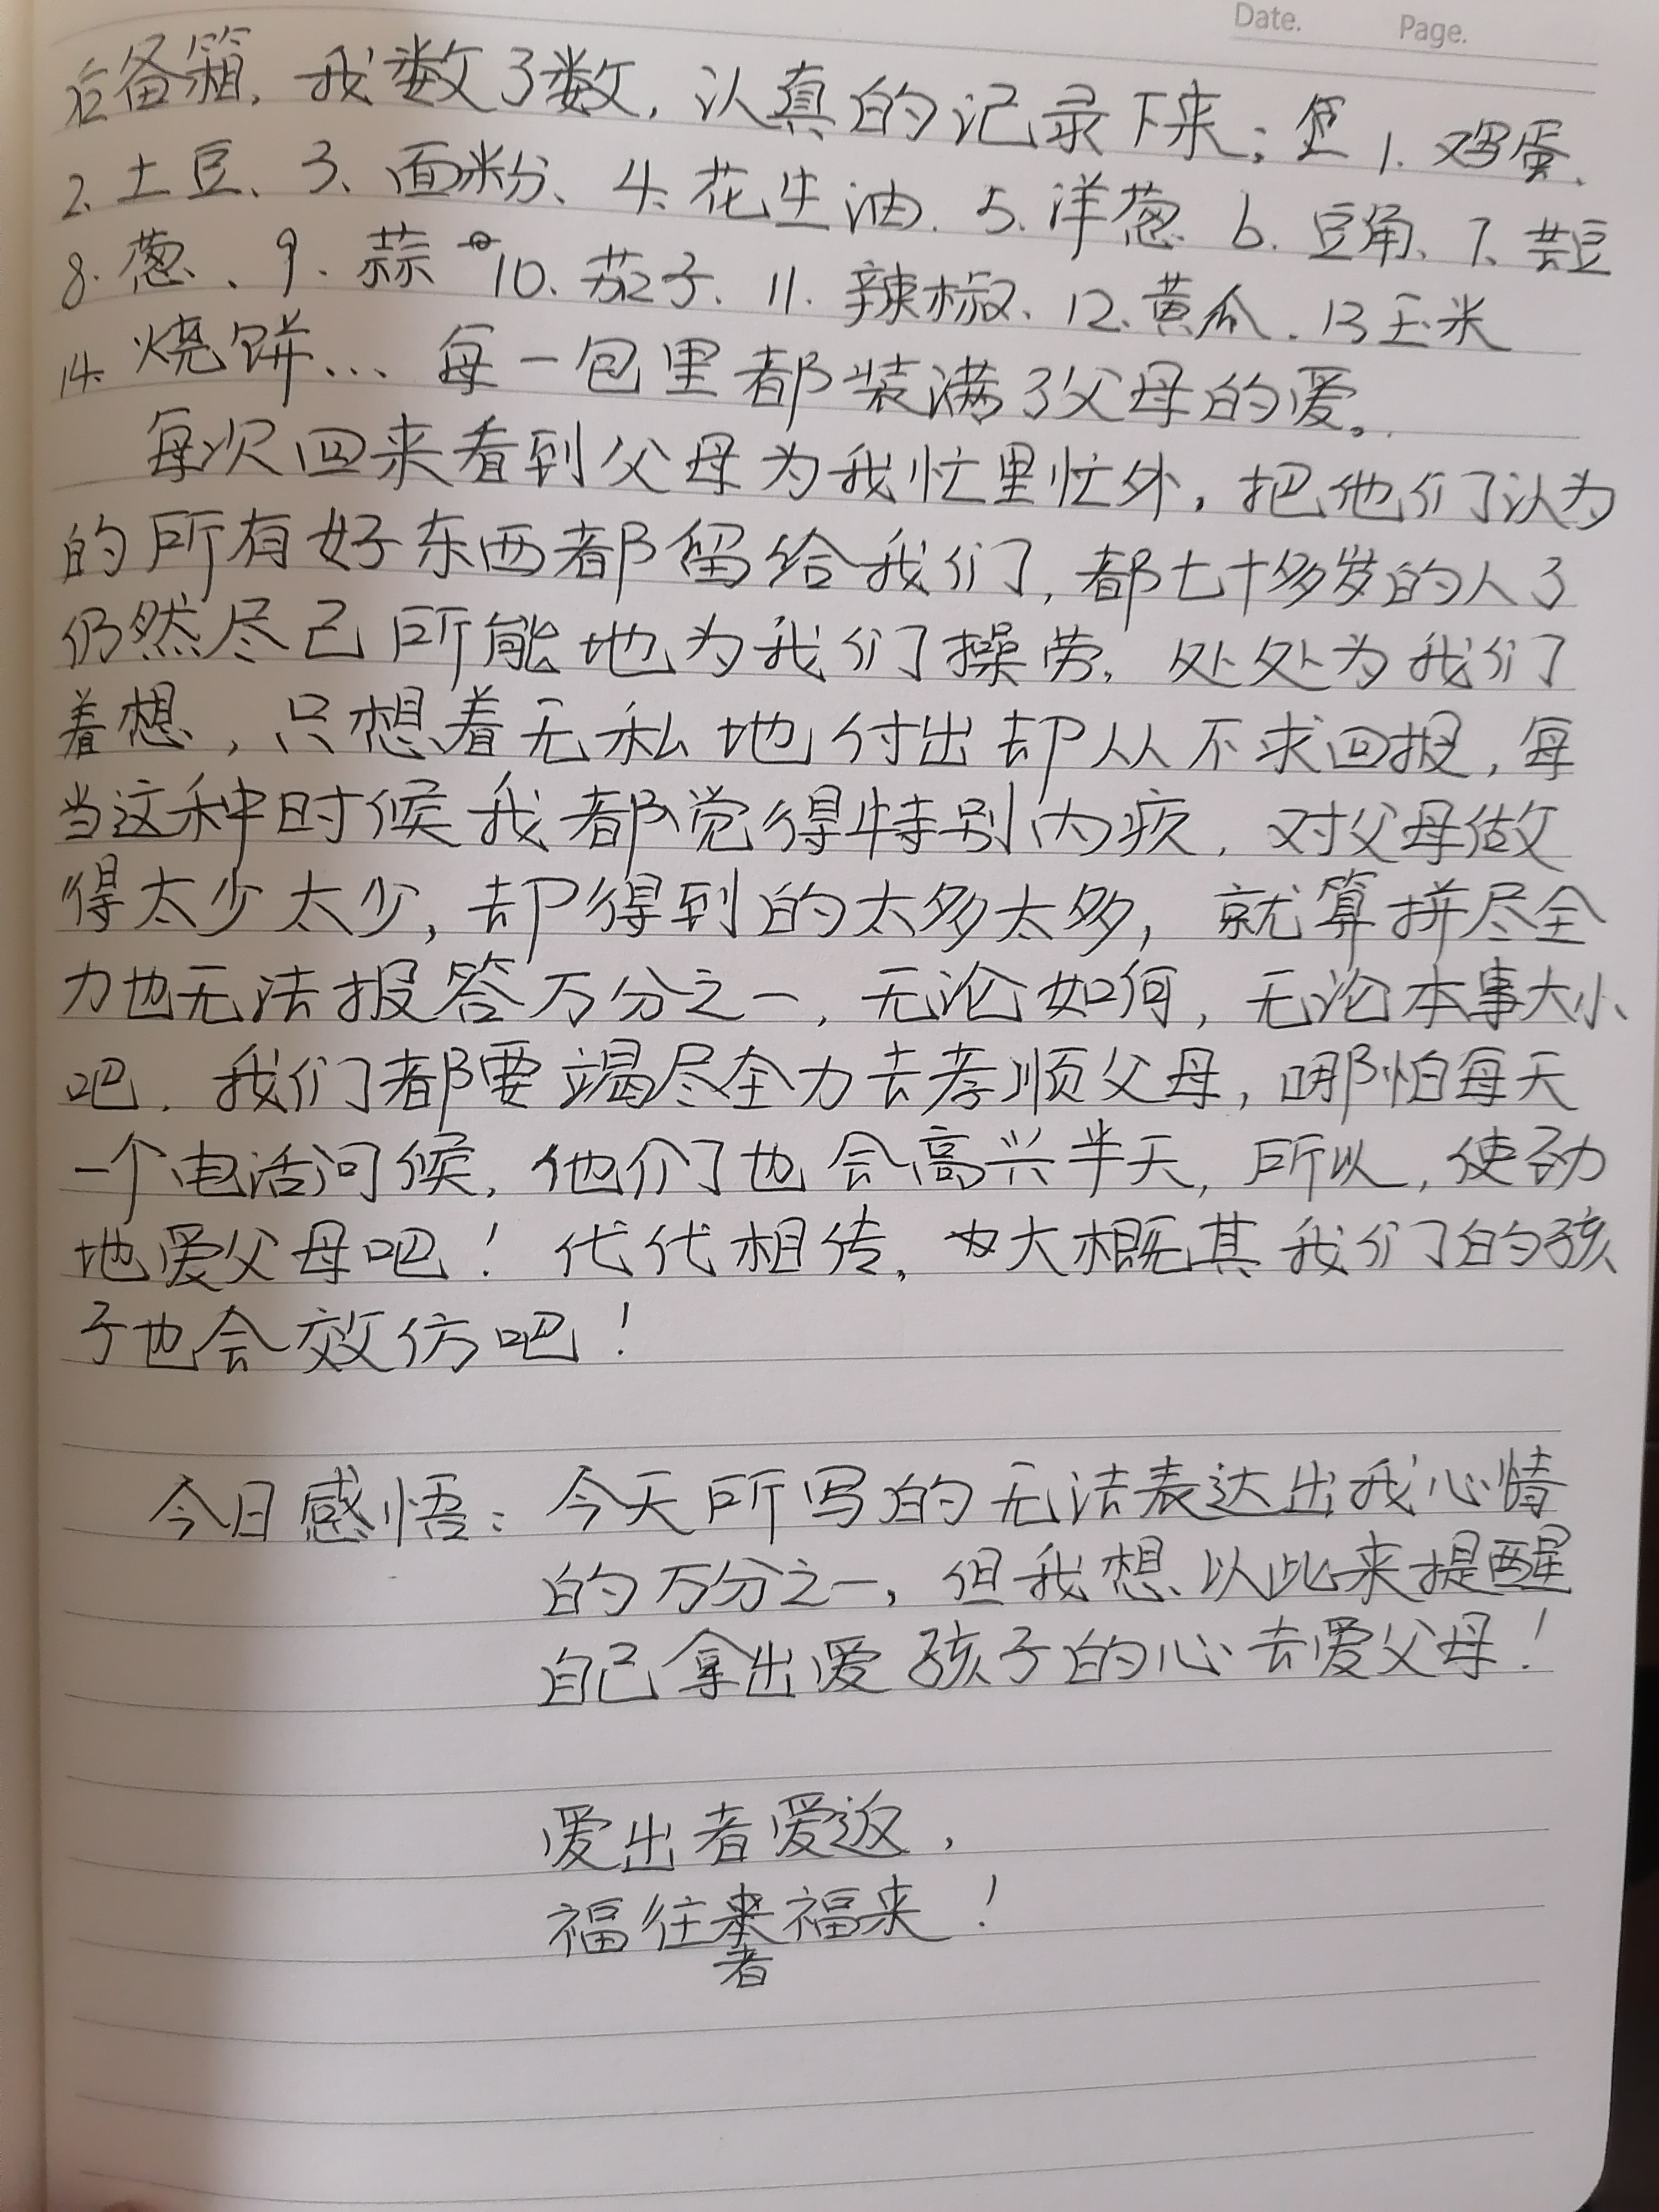 Date. Page.
后备箱，我数了数，认真的记录下来：1. 鸡蛋、
2. 土豆、3、面粉、4. 花生油、5. 洋葱 6. 豆角、7、芸豆
8. 葱、9. 蒜 10. 茄子、11. 辣椒、12、黄瓜、13 玉米
14. 烧饼... 每一包里都装满了父母的爱。
每次回来看到父母为我忙里忙外，把他们认为
的所有好东西都留给我们，都七十多岁的人了
仍然尽己所能地为我们操劳，处处为我们
着想，只想着无私地付出却从不求回报，每
当这种时候我都觉得特别内疚，对父母做
得太少太少，却得到的太多太多，就算拼尽全
力也无法报答万分之一，无论如何，无论本事大小
吧，我们都要竭尽全力去孝顺父母，哪怕每天
一个电话问候，他们也会高兴半天，所以，使劲
地爱父母吧！代代相传，大概其我们的孩
子也会效仿吧！
今日感悟：今天所写的无法表达出我心情
的万分之一，但我想以此来提醒
自己拿出爱孩子的心去爱父母！
爱出者爱返，
福往者福来！